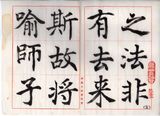 之法非
有去来
斯故将
喻師子